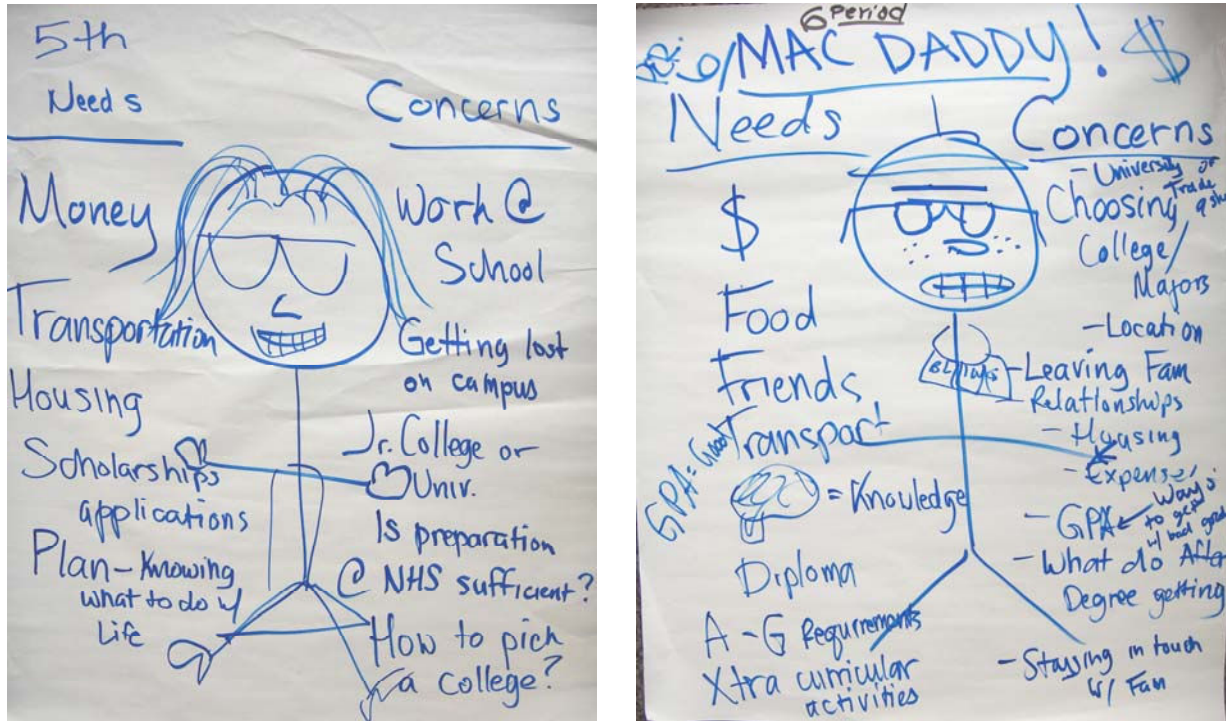 5th
Needs
Concerns
Money
Transportation
Housing
Scholarships
applications
Plan - Knowing
what to do w/
Life
Work @
School
Getting lost
on campus
Jr. College or
Univ.
Is preparation
@ NHS sufficient?
How to pick
a college?
6 Period
MAC DADDY! $
Needs
Concerns
$
Food
Friends
Transport
GPA = Good
= Knowledge
Diploma
A-G Requirements
Xtra curricular
activities
- University or
Trade
Choosing
College/
Majors
- Location
- Leaving Fam
Relationships
- Housing
- Expense
- GPA
Ways
to get
w/ bad
- What do After
Degree getting
- Staying in touch
w/ Fam